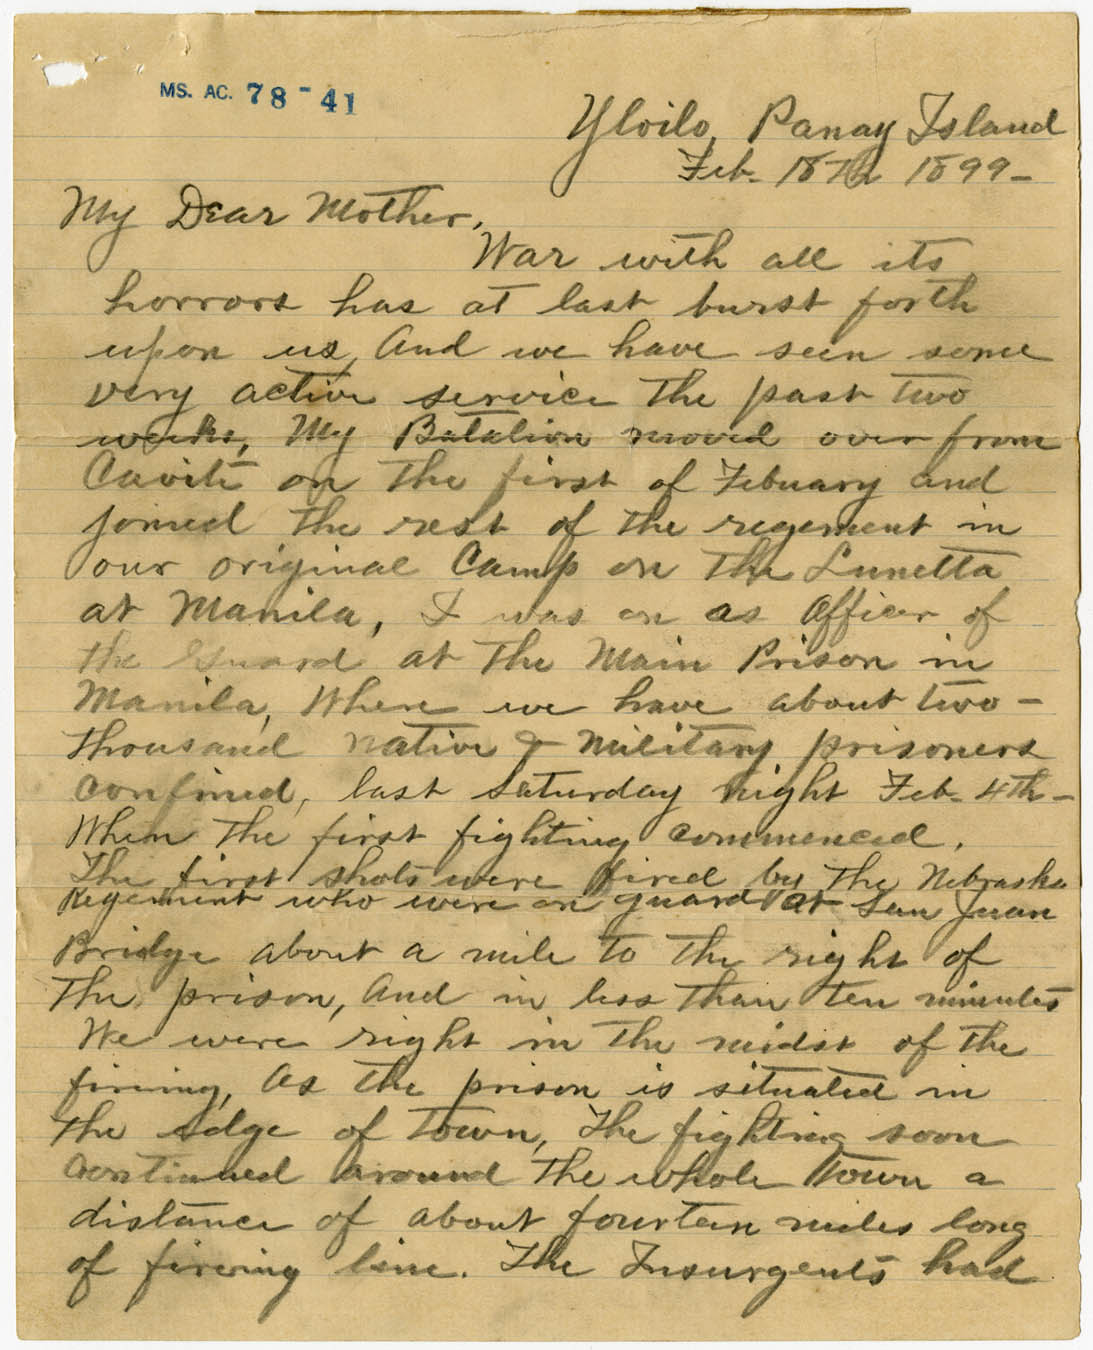 MS. AC. 78-41
Yloilo, Panay Island
Feb. 18th 1899-
My Dear Mother,
War with all its
horrors has at last burst forth
upon us, And we have seen some
very active service the past two
weeks, My Batalion moved over from
Cavite on the first of Febuary and
joined the rest of the regement in
our original Camp on the Lunetta
at Manila, I was on as Officer of
the Guard at the Main Prison in
Manila, Where we have about two-
thousand native & military prisoners
confined, last Saturday night Feb. 4th-
When the first fighting commenced.
The first shots were fired by the Nebraska
Regement who were on guard at San Juan
Bridge about a mile to the right of
the prison, And in less than ten minutes
We were right in the midst of the
fireing, As the prison is situated in
the edge of town, The fighting soon
contiued around the whole town a
distance of about fourteen miles long
of fireing line. The Insurgents had